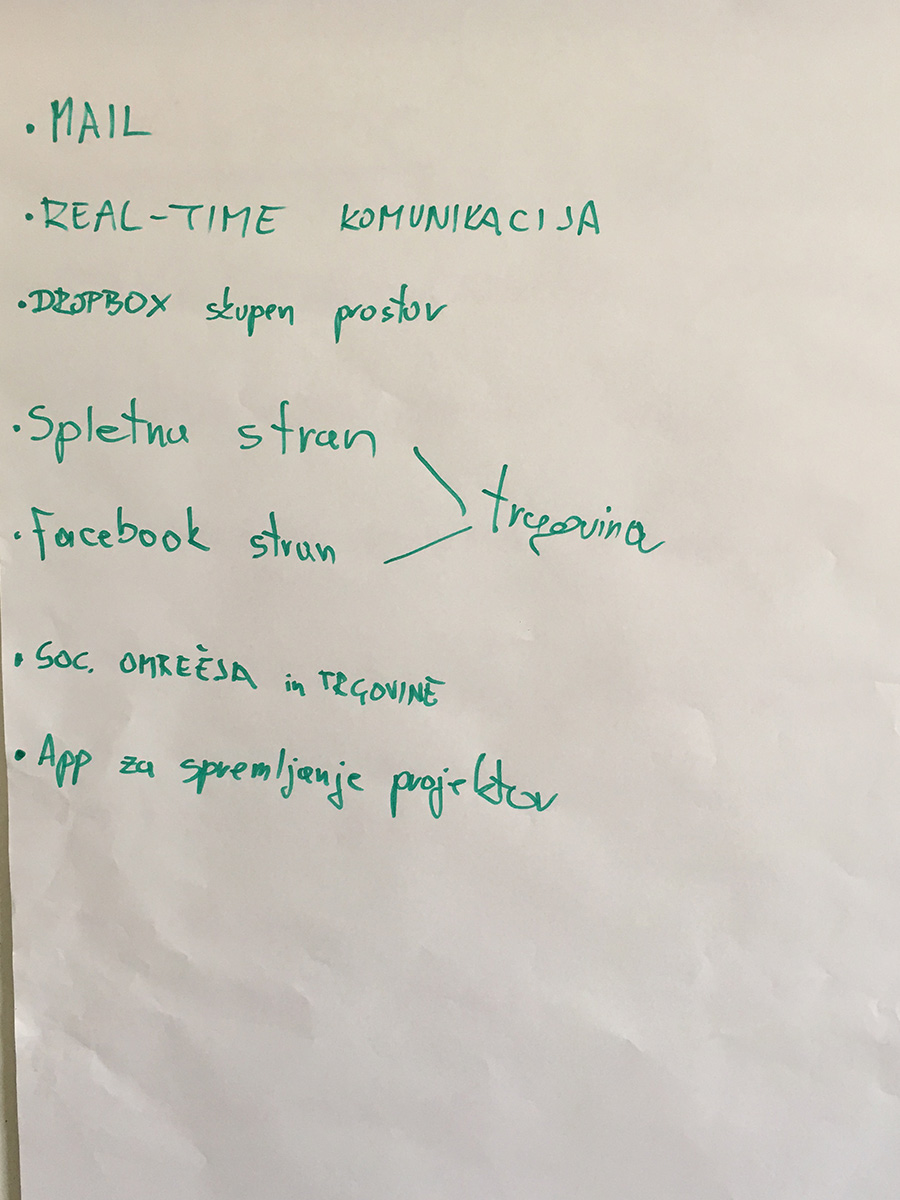 • MAIL
• REAL-TIME KOMUNIKACIJA
• DROPBOX skupen prostor
• Spletna stran
trgovina
• Facebook stran
• SOC. OMREŽJA in TRGOVINE
• App za spremljanje projektov